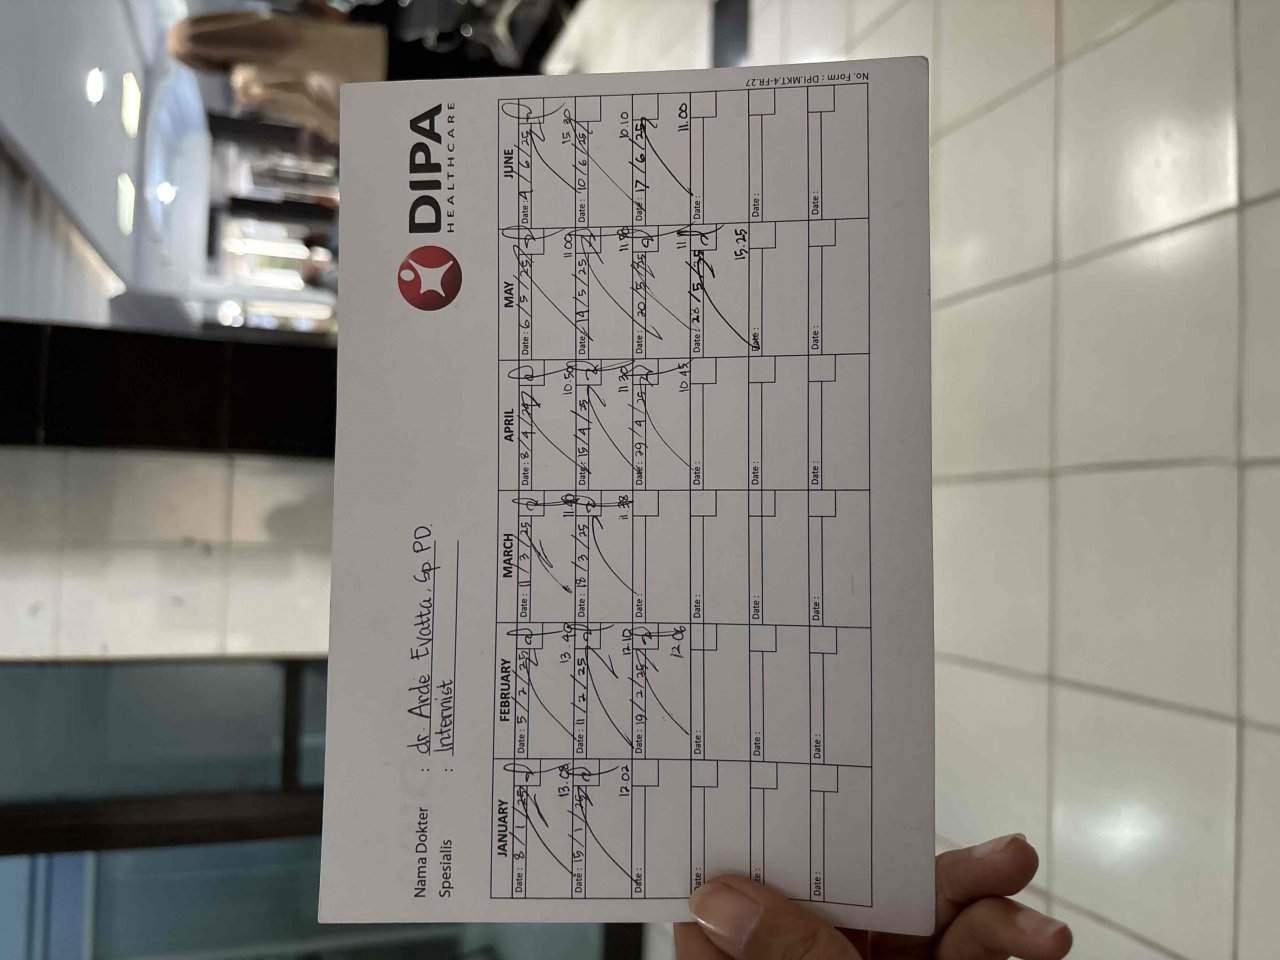 DIPA
HEALTHCARE
Nama Dokter : dr. Arde Evatta, Sp PD.
Spesialis : Internist
JANUARY FEBRUARY MARCH APRIL MAY JUNE
Date : 8 / 1 / 25 Date : 5 / 2 / 25 Date : 11 / 3 / 25 Date : 8 / 4 / Date : 6 / 5 / 25 Date : 4 / 6 / 25
13.08 13.40 11.40 10.50 11.00 15.30
Date : 15 / 1 / 25 Date : 11 / 2 / 25 Date : 18 / 3 / 25 Date : 15 / 4 / 25 Date : 14 / 5 / 25 Date : 10 / 6 / 25
12.02 12.10 11.38 11.30 10.10
Date : Date : 19 / 2 / 25 Date : Date : 29 / 4 / 25 Date : 20 / 5 / 25 Date : 17 / 6 / 25
12.06 10.45 11.00
Date : Date : Date : Date : Date : 26 / 5 / 25 Date :
15.25
Date : Date : Date : Date : Date : Date :
Date : Date : Date : Date : Date : Date :
No. Form : DPI.MKT.4-FR.27